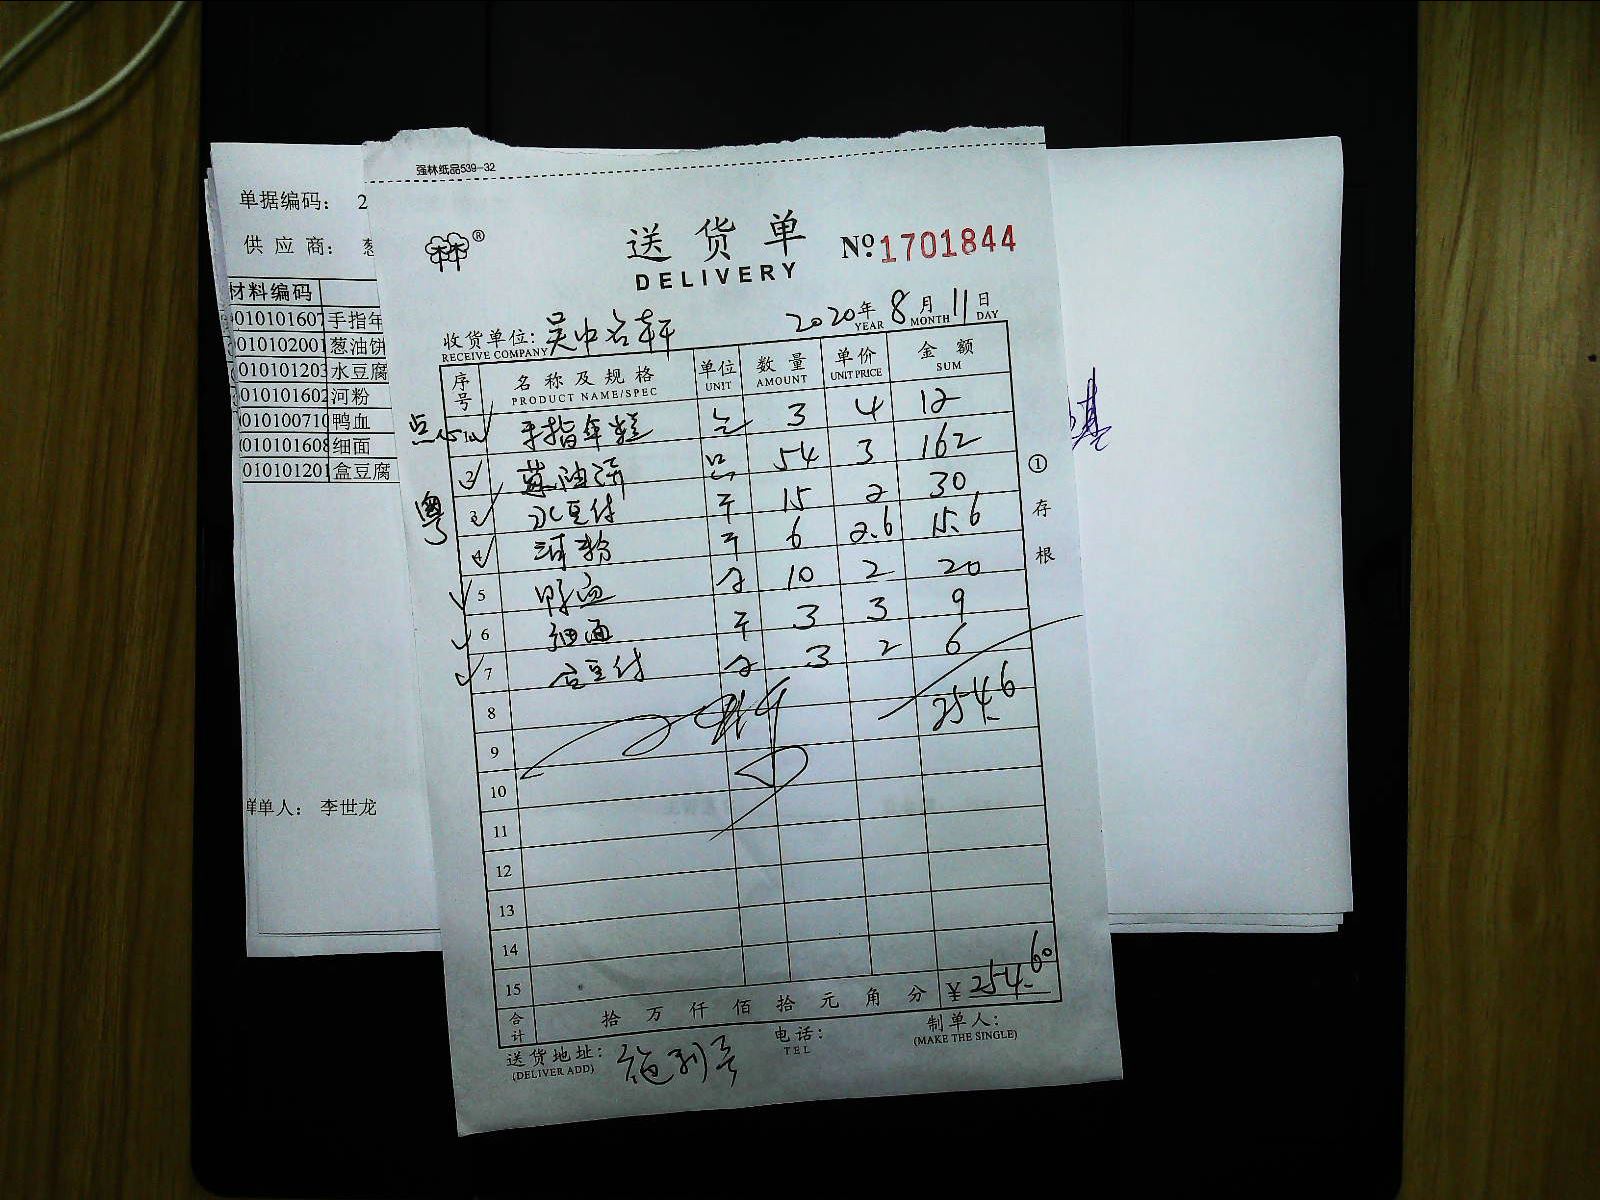 强林纸品539-32
单据编码： 2
供 应 商：
材料编码
010101607 手指年
010102001 葱油饼
010101203 水豆腐
010101602 河粉
010100710 鸭血
010101608 细面
010101201 盒豆腐
单人： 李世龙
林林 ®
送 货 单
DELIVERY
Nº 1701844
收货单位: 吴中名轩
RECEIVE COMPANY
2020 年 8 月 11 日
YEAR MONTH DAY
序号 名 称 及 规 格 单位 数 量 单价 金 额
PRODUCT NAME/SPEC UNIT AMOUNT UNIT PRICE SUM
点心 1 手指年糕 3 4 12
2 葱油饼 54 3 162
粤
3 水豆付 斤 15 2 30
4 河粉 斤 6 2.6 15.6
5 鸭血 10 2 20
6 细面 斤 3 3 9
7 合豆付 3 2 6
8 254.6
9
10
11
12
13
14
15
合计 拾 万 仟 佰 拾 元 角 分 ¥ 254.60
① 存 根
送货地址： 电话： 制单人：
(DELIVER ADD) TEL (MAKE THE SINGLE)